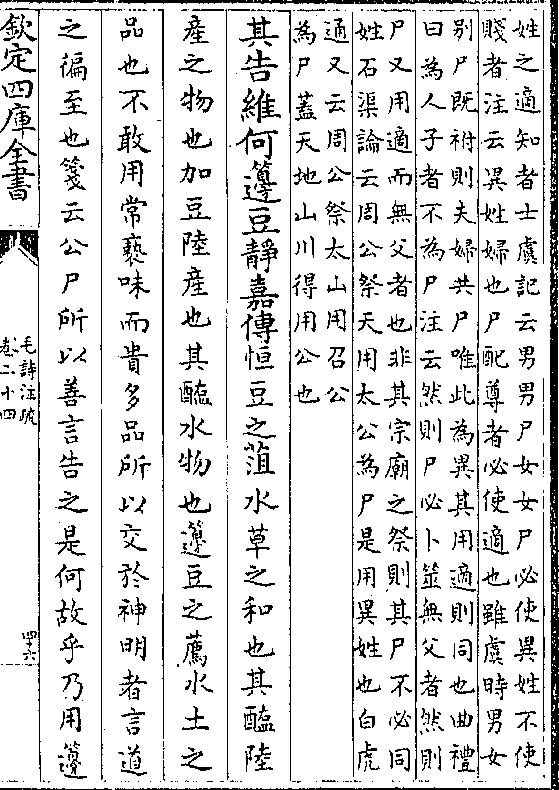 姓之適知者士虞記云男男尸女女尸必使異姓不使
賤者注云異姓婦也尸配尊者必使適也雖虞時男女
别尸既祔則夫婦共尸唯此為異其用適則同也曲禮
曰為人子者不為尸注云然則尸必卜筮無父者然則
尸又用適而無父者也非其宗廟之祭則其尸不必同
姓石渠論云周公祭天用太公為尸是用異姓也白虎
通又云周公祭太山用召公
為尸蓋天地山川得用公也
其告維何籩豆靜嘉傳恒豆之菹水草之和也其醢陸
產之物也加豆陸產也其醢水物也籩豆之薦水土之
品也不敢用常褻味而貴多品所以交於神明者言道
之徧至也箋云公尸所以善言告之是何故乎乃用籩
欽定四庫全書
毛詩注疏
卷二十四
四十六